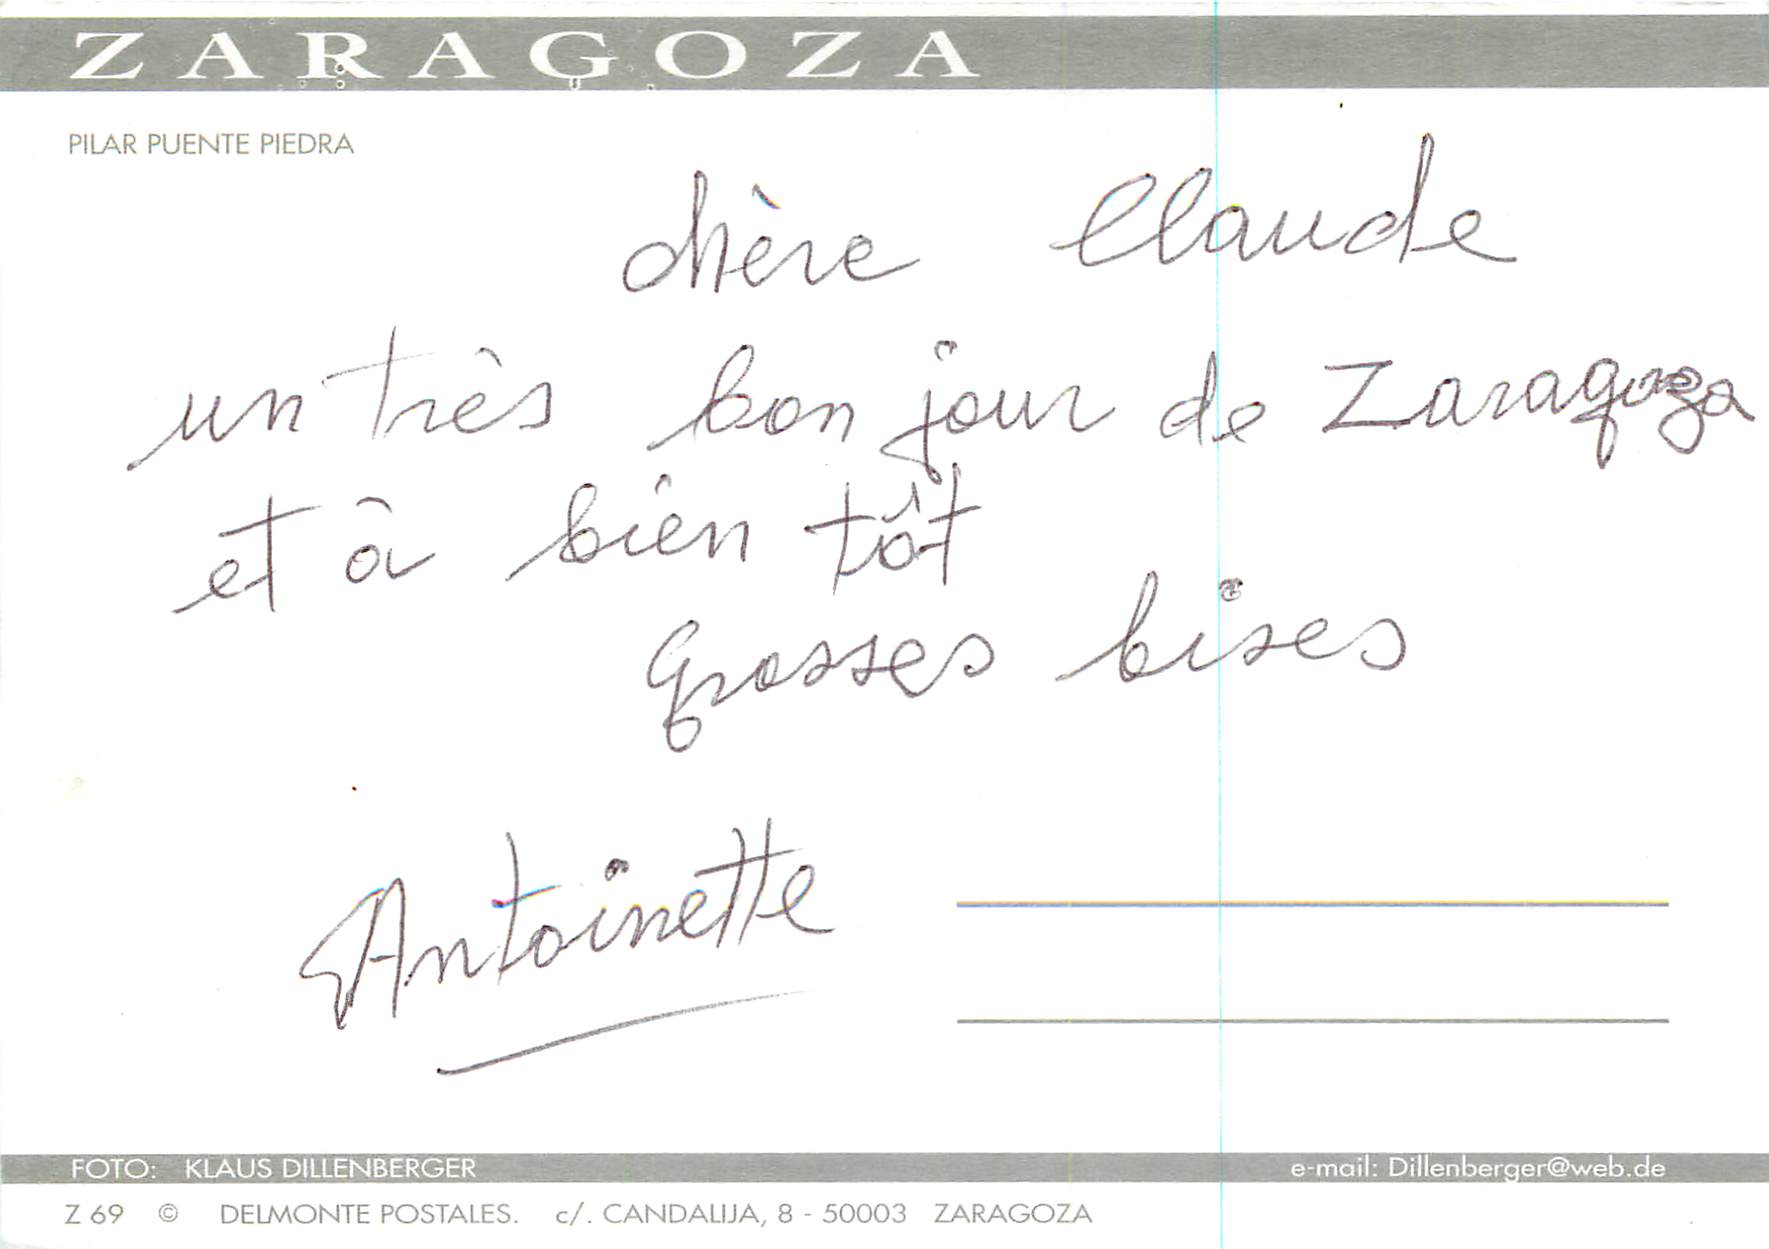 ZARAGOZA
PILAR PUENTE PIEDRA
chère Claude
un très bon jour de Zaragoza
et à bien tôt
grosses bises
Antoinette
FOTO: KLAUS DILLENBERGER e-mail: Dillenberger@web.de
Z 69 © DELMONTE POSTALES. c/. CANDALIJA, 8 - 50003 ZARAGOZA